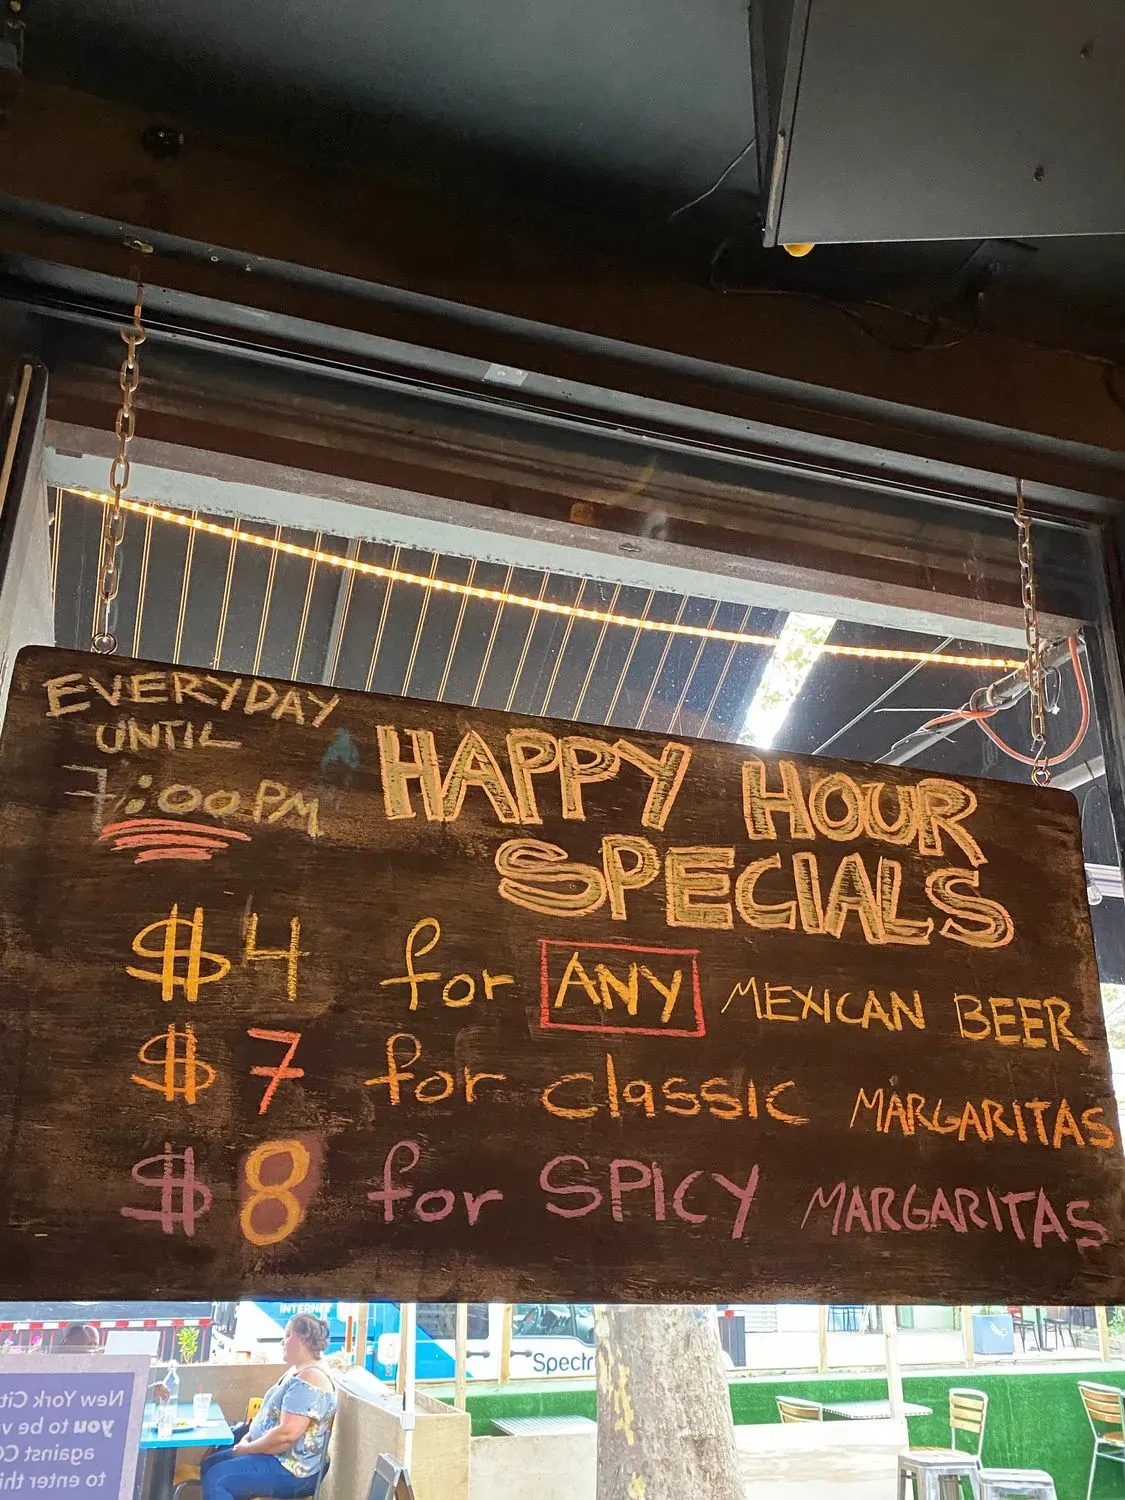 EVERYDAY
UNTIL
7:00PM
HAPPY HOUR
SPECIALS
$4 for ANY MEXICAN BEER
$7 for classic MARGARITAS
$8 for SPICY MARGARITAS
INTERNET
Spectr
New York Cit
you to be v
against CO
to enter this